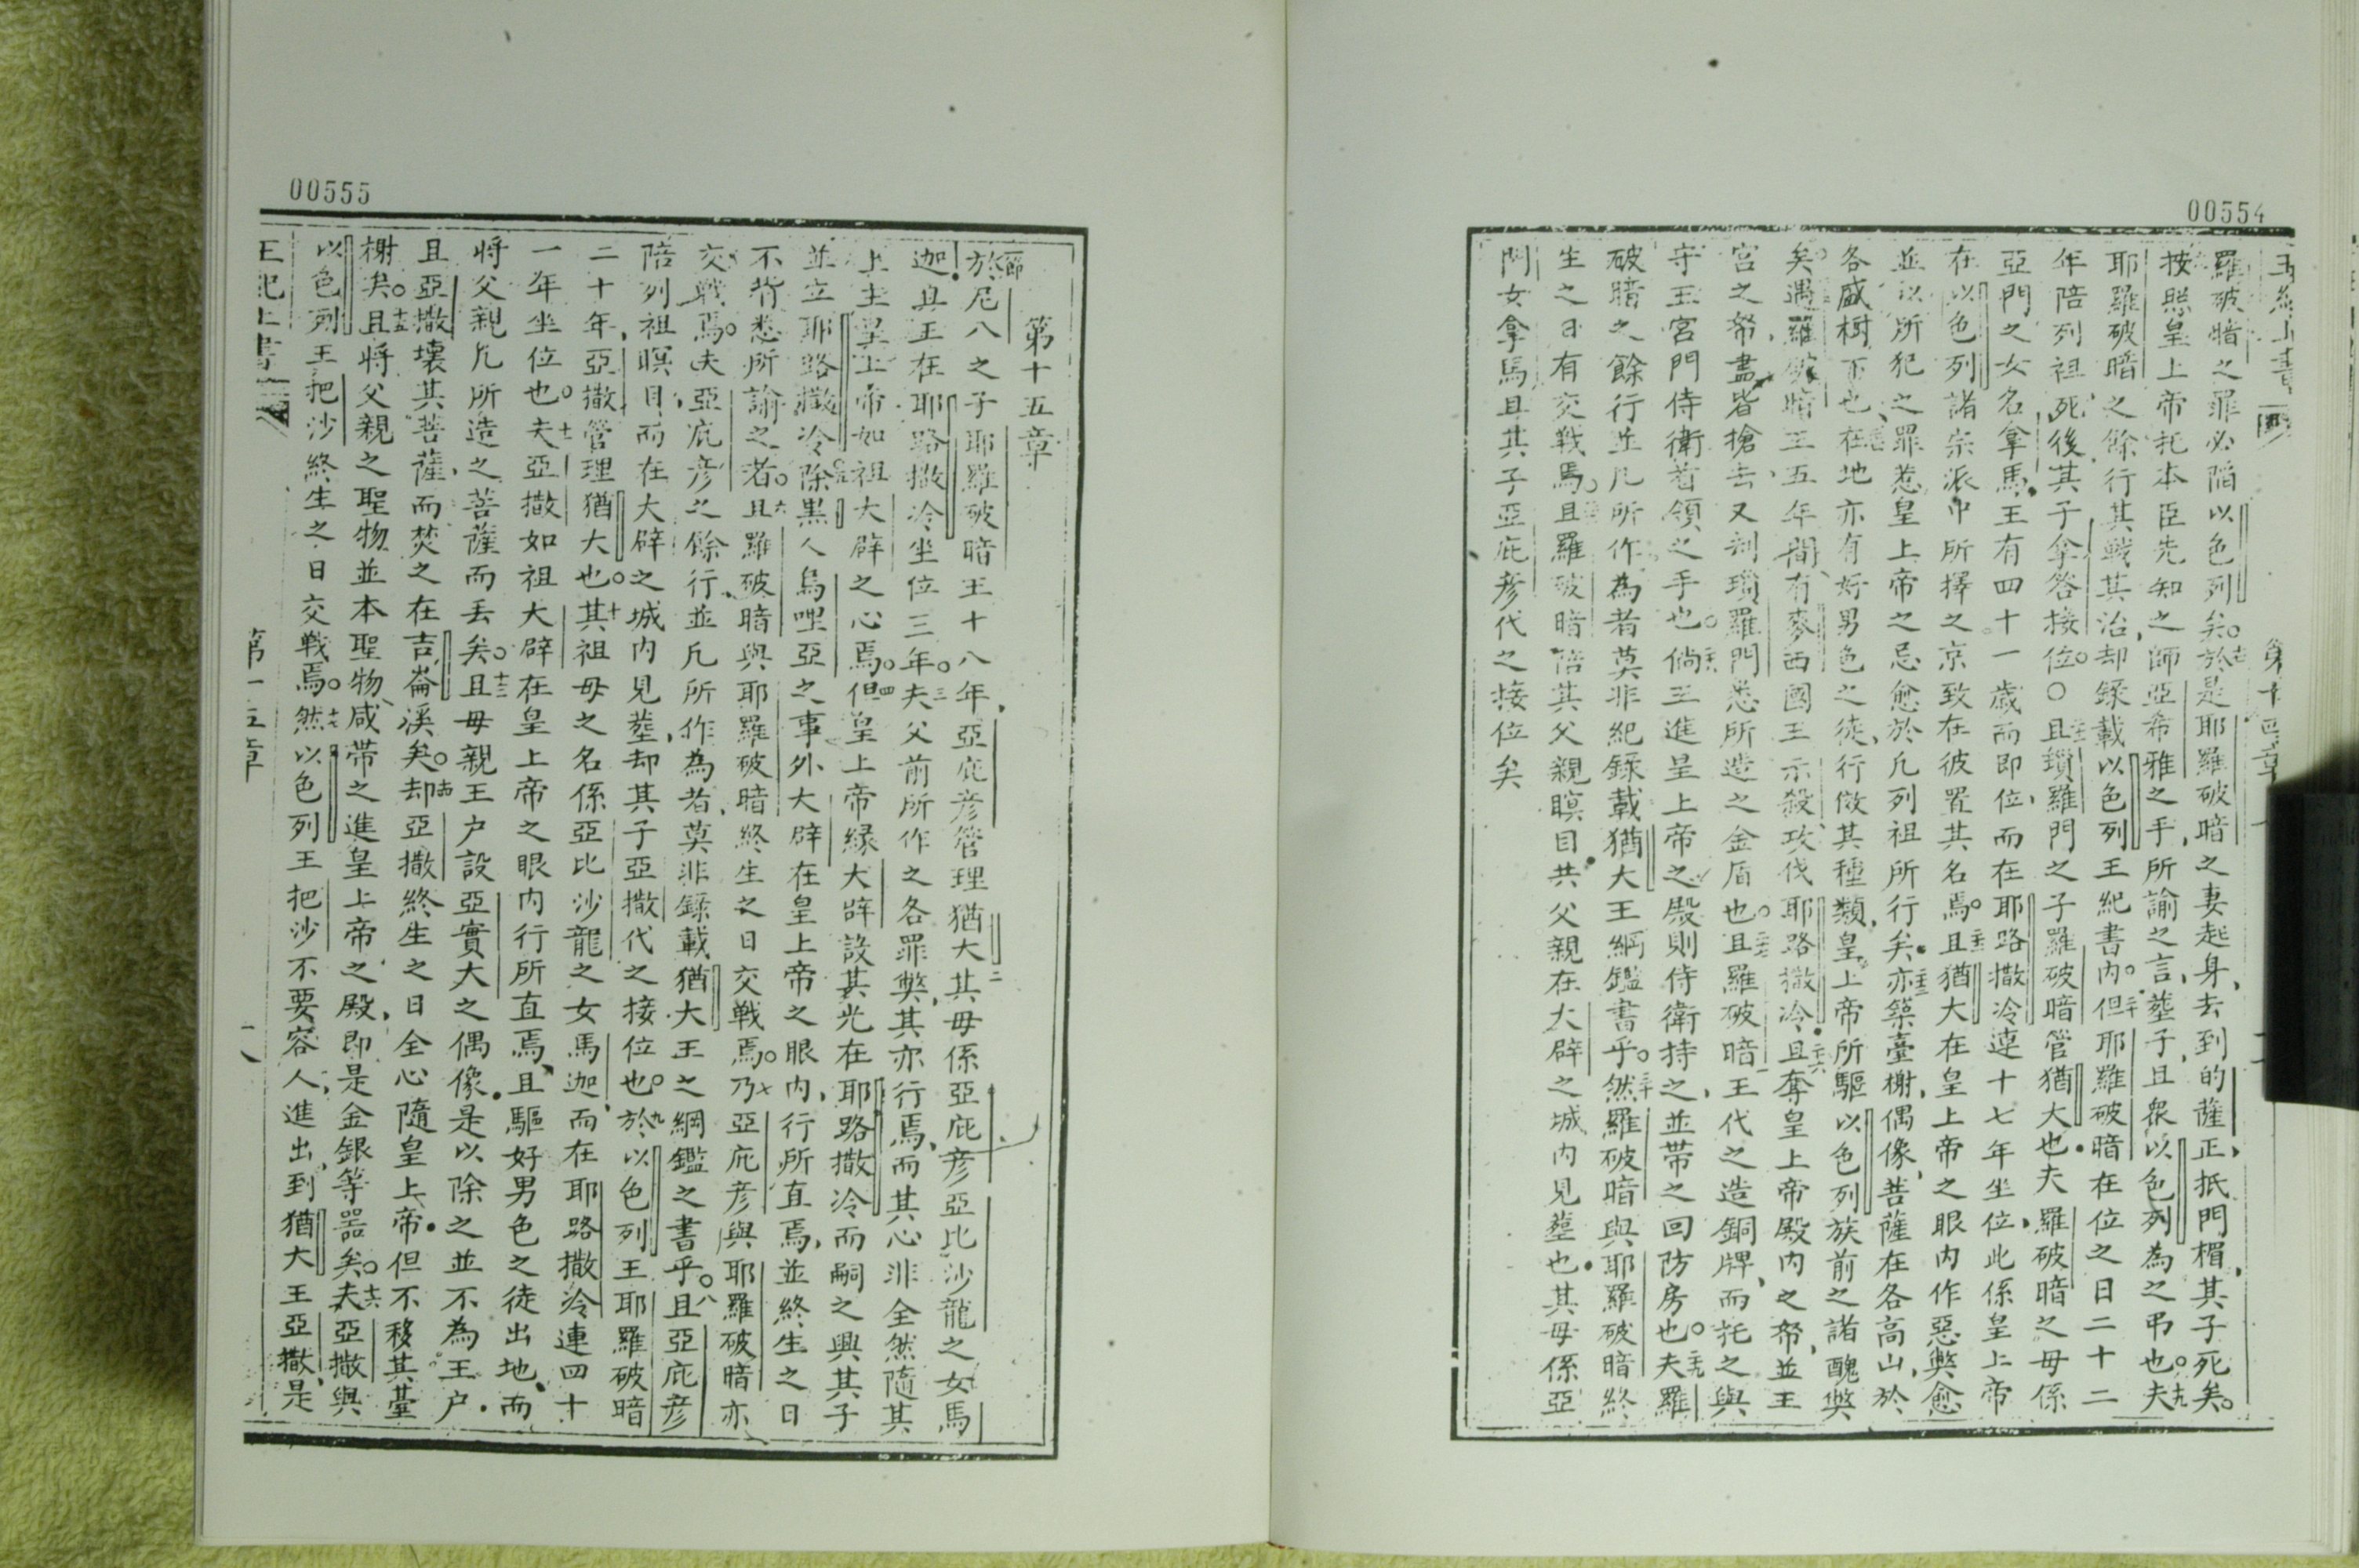 00554
羅破暗之罪必陷以色列矣。於是耶羅破暗之妻起身、去到的薩正抵門楣、其子死矣。
按照皇上帝托本臣先知之師亞希雅之手、所諭之言、葬子、且衆以色列為之弔也。十九夫
耶羅破暗之餘行、其戰其治、却錄載以色列王紀書內。二十但耶羅破暗在位之日二十二
年陪列祖死後、其子拿答接位。○且鎖羅門之子羅破暗管猶大也。夫羅破暗之母係
亞門之女名拿馬、王有四十一歲而即位、而在耶路撒冷連十七年坐位此係皇上帝
在以色列諸宗派中所擇之京致在彼置其名焉。且猶大在皇上帝之眼內作惡獘愈
並以所犯之罪惹皇上帝之忌愈於凡列祖所行矣。亦築臺榭、偶像、菩薩在各高山、於
各盛樹下也、在地亦有好男色之徒、行倣其種類、皇上帝所驅以色列族前之諸醜獘
矣。遇羅破暗王五年間有麥西國王示殺攻伐耶路撒冷。二六且奪皇上帝殿內之帑、並王
宮之帑、盡皆搶去、又刦鎖羅門悉所造之金盾也。且羅破暗王代之造銅牌、而托之與
守王宮門侍衛着領之手也。倘王進皇上帝之殿則侍衛持之、並帶之回防房也。二九夫羅
破暗之餘行並凡所作為者莫非紀錄載猶大王綱鑑書乎。三十然羅破暗與耶羅破暗終
生之日有交戰焉。且羅破暗陪其父親瞑目共父親在大辟之城內見葬也。其母係亞
門女拿馬且其子亞庇彥代之接位矣
00555
第十五章
節於尼八之子耶羅破暗王十八年、亞庇彥管理猶大二其母係亞庇彥亞比沙龍之女馬
迦且王在耶路撒冷坐位三年。三夫父前所作之各罪獘、其亦行焉、而其心非全然隨其
上主皇上帝如祖大辟之心焉。四但皇上帝緣大辟設其光在耶路撒冷而嗣之興其子
並立耶路撒冷。五除黑人烏哩亞之事外大辟在皇上帝之眼內、行所直焉、並終生之日
不背悉所諭之者。六且羅破暗與耶羅破暗終生之日交戰焉。七乃亞庇彥與耶羅破暗亦
交戰焉。夫亞庇彥之餘行、並凡所作為者、莫非錄載猶大王之綱鑑之書乎。八且亞庇彥
陪列祖瞑目、而在大辟之城內見葬、却其子亞撒代之接位也。九於以色列王耶羅破暗
二十年、亞撒管理猶大也。十其祖母之名係亞比沙龍之女馬迦、而在耶路撒冷連四十
一年坐位也。十一夫亞撒如祖大辟在皇上帝之眼內行所直焉、且驅好男色之徒出地、而
將父親凡所造之菩薩而丟矣。十三且母親王户設亞實大之偶像。是以除之並不為王户。
且亞撒壊其菩薩、而焚之在吉崙溪矣。十四却亞撒終生之日全心隨皇上帝。但不移其臺
榭矣。十五且將父親之聖物並本聖物咸帶之進皇上帝之殿、即是金銀等器矣。十六夫亞撒與
以色列王把沙終生之日交戰焉。十七然以色列王把沙不要容人、進出、到猶大王亞撒、是
王紀上書
第十五章